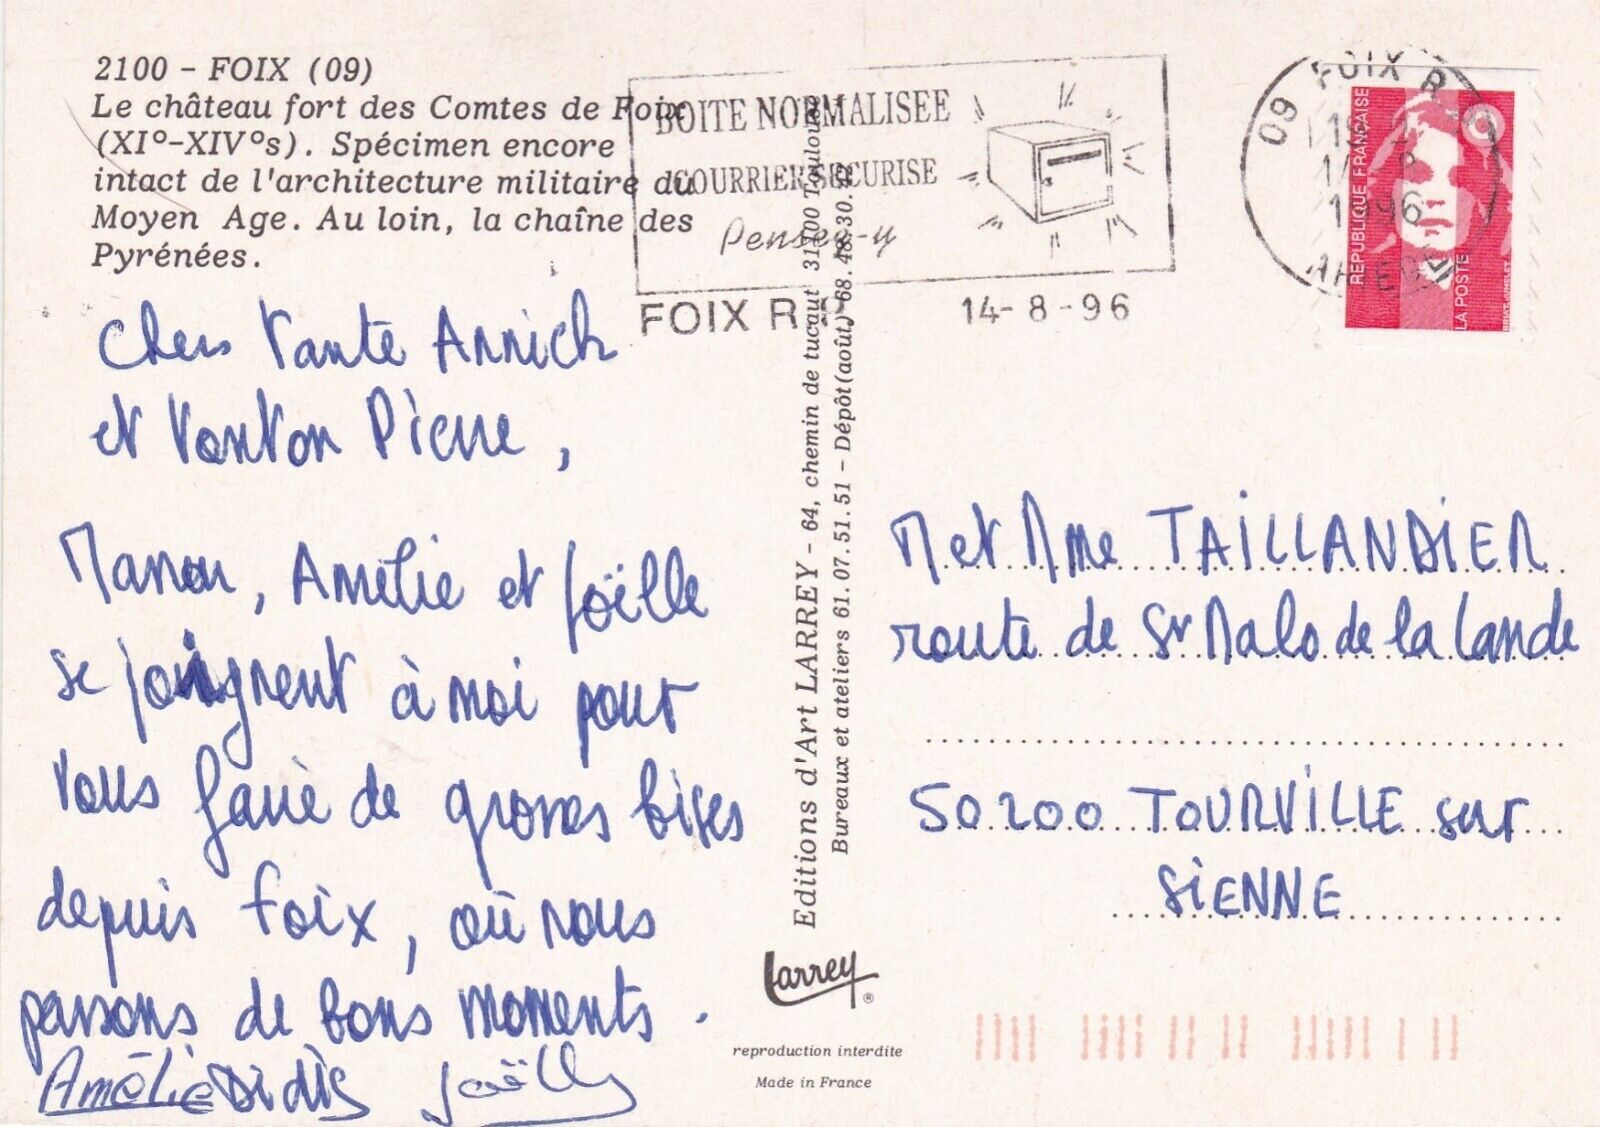 2100 - FOIX (09)
Le château fort des Comtes de Foix
(XI°-XIV°s). Spécimen encore
intact de l'architecture militaire du
Moyen Age. Au loin, la chaîne des
Pyrénées.
BOITE NORMALISEE
COURRIER SECURISE
Pensez-y
FOIX R P
14-8-96
09 FOIX R P
96
ARIEGE
REPUBLIQUE FRANÇAISE
LA POSTE
Chers Tante Annick
et Tonton Pierre,
Manon, Amélie et Joëlle
se joignent à moi pour
vous faire de grosses bises
depuis Foix, où nous
passons de bons moments.
Amélie Didis Joëlle
Editions d'Art LARREY - 64, chemin de tucaut 31100 Toulouse
Bureaux et ateliers 61.07.51.51 - Dépôt(août) 68.48.30.
Larrey ®
reproduction interdite
Made in France
M et Mme TAILLANDIER
route de St Malo de la Lande
50200 TOURVILLE sur
SIENNE